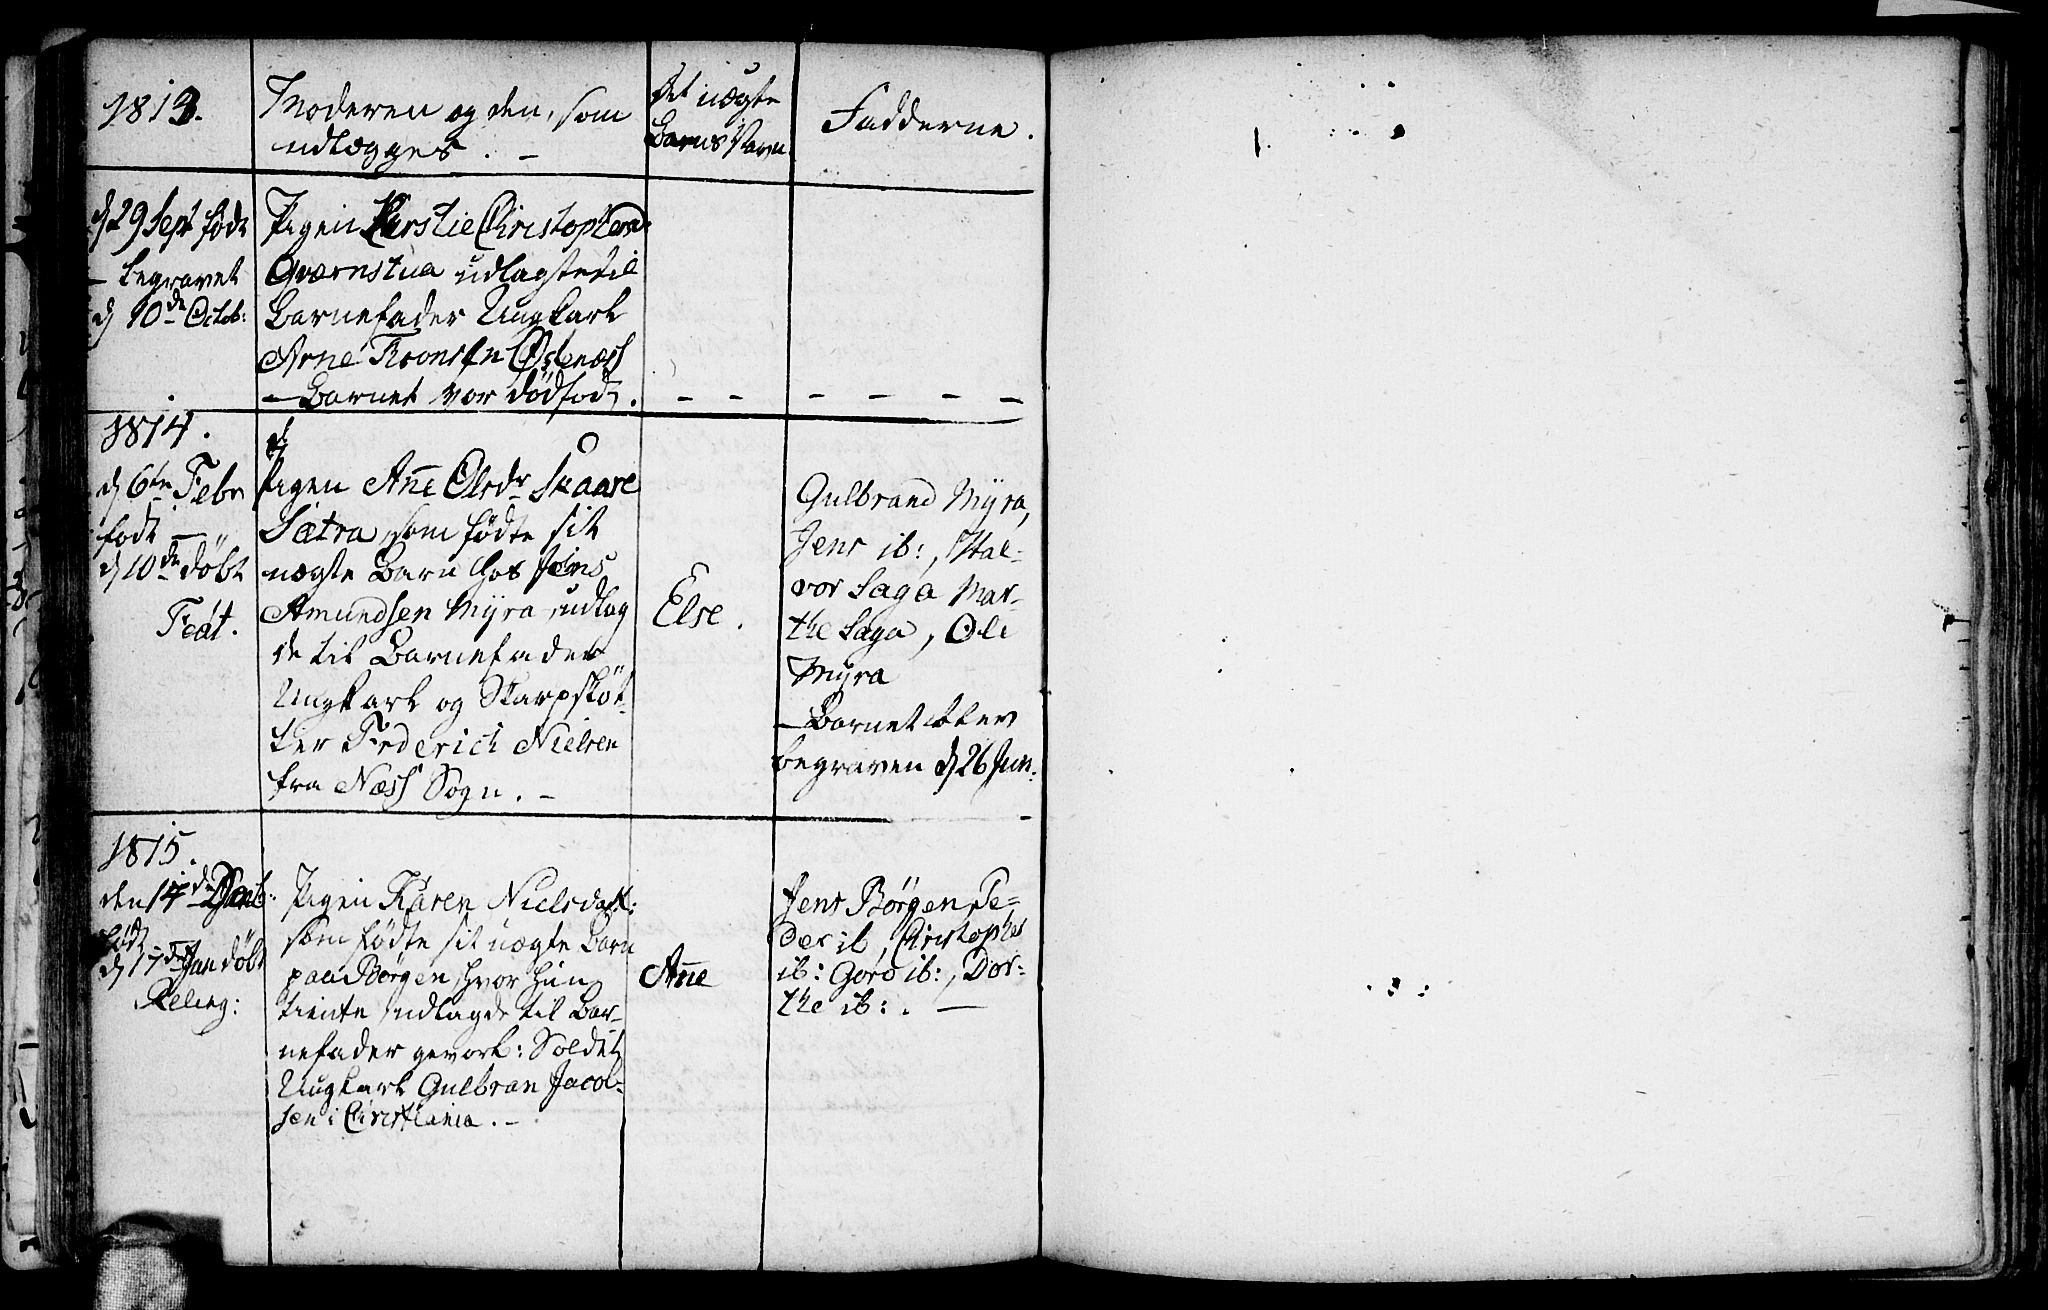 1813.
Moderen og den, som
udlægges. -
Det uægte
Barns Navn
Fadderne.
d 29 Sept født
- begravet
d 10de Octob:
Pigen Kirstie Christophersd:
Qværnstua udlagste til
Barnefader Ungkarl
Arne Tronsen Østenæss
- Barnet var dødfød.
- -
- - - - -
1814.
d 6te Febr
født -
d 10de døbt
Feát.
Pigen Anne Olsdr Skaare
Sætra, som fødte sit
uægte Barn hos Jens
Amundsen Myra, udlag
de til Barnefader
Ungkarl og Skarpskøt-
ter Frederich Nielsen
fra Næss Sogn. -
Else.
Gulbrand Myra,
Jens ib:, Hal-
vor Saga Mar-
the Saga, Ole
Myra
- Barnet blev
begraven d 26 Jun:
1815.
den 14de
født
d 17de Jan døbt
Pigen Karen Nielsdatt:
som fødte sit uægte Barn
paa Børgen, hvor hun
tiente udlagde til Bar-
nefader gevorb: Soldat
Ungkarl Gulbran Jacob-
sen i Christiania. -
Anne
Jens Børgen, Pe-
der ib, Christopher
ib: Goro ib:, Dor-
the ib:. -